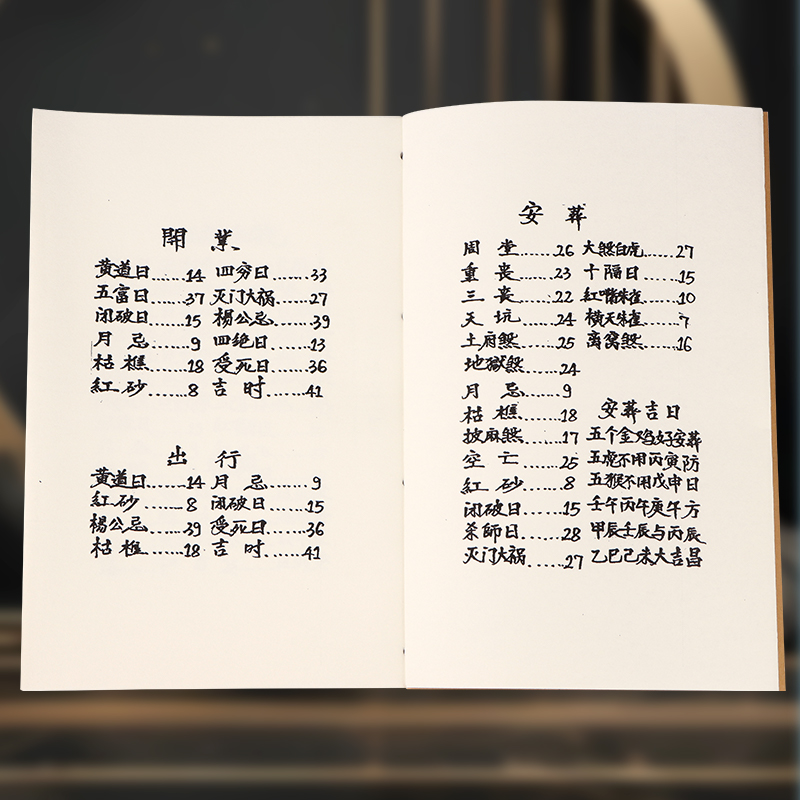 開 業
黄道日......14 四穷日.......33
五富日......37 灭门大祸.......27
闭破日......15 楊公忌.......39
月 忌......9 四绝日.......13
枯 樵......18 受死日.......36
紅 砂.......8 吉 时.......41
出 行
黄道日.....14 月 忌.......9
紅 砂.....8 闭破日.......15
楊公忌.....39 受死日.......36
枯 樵......18 吉 时.......41
安 葬
周 堂......26 大煞白虎......27
重 丧......23 十隔日......15
三 丧......22 紅嘴朱雀......10
天 坑......24 横天朱雀......7
土府煞......25 离窝煞......16
地獄煞......24
月 忌...9
枯 樵......18
披麻煞......17
空 亡......25
紅 砂......8
闭破日......15
杀師日......28
灭门大祸......27
安葬吉日
五个金鸡好安葬
五虎不用丙寅防
五猴不用戊申日
壬午丙午庚午方
甲辰壬辰与丙辰
乙巳己未大吉昌